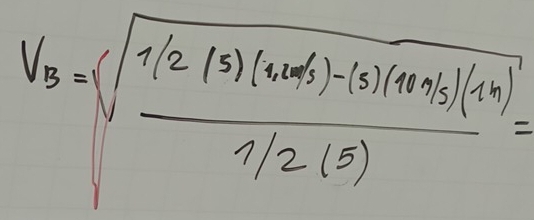 V_B = √ 1/2 (5) (1,2m/s) - (5) (10 m/s) (1m) =
1/2 (5)